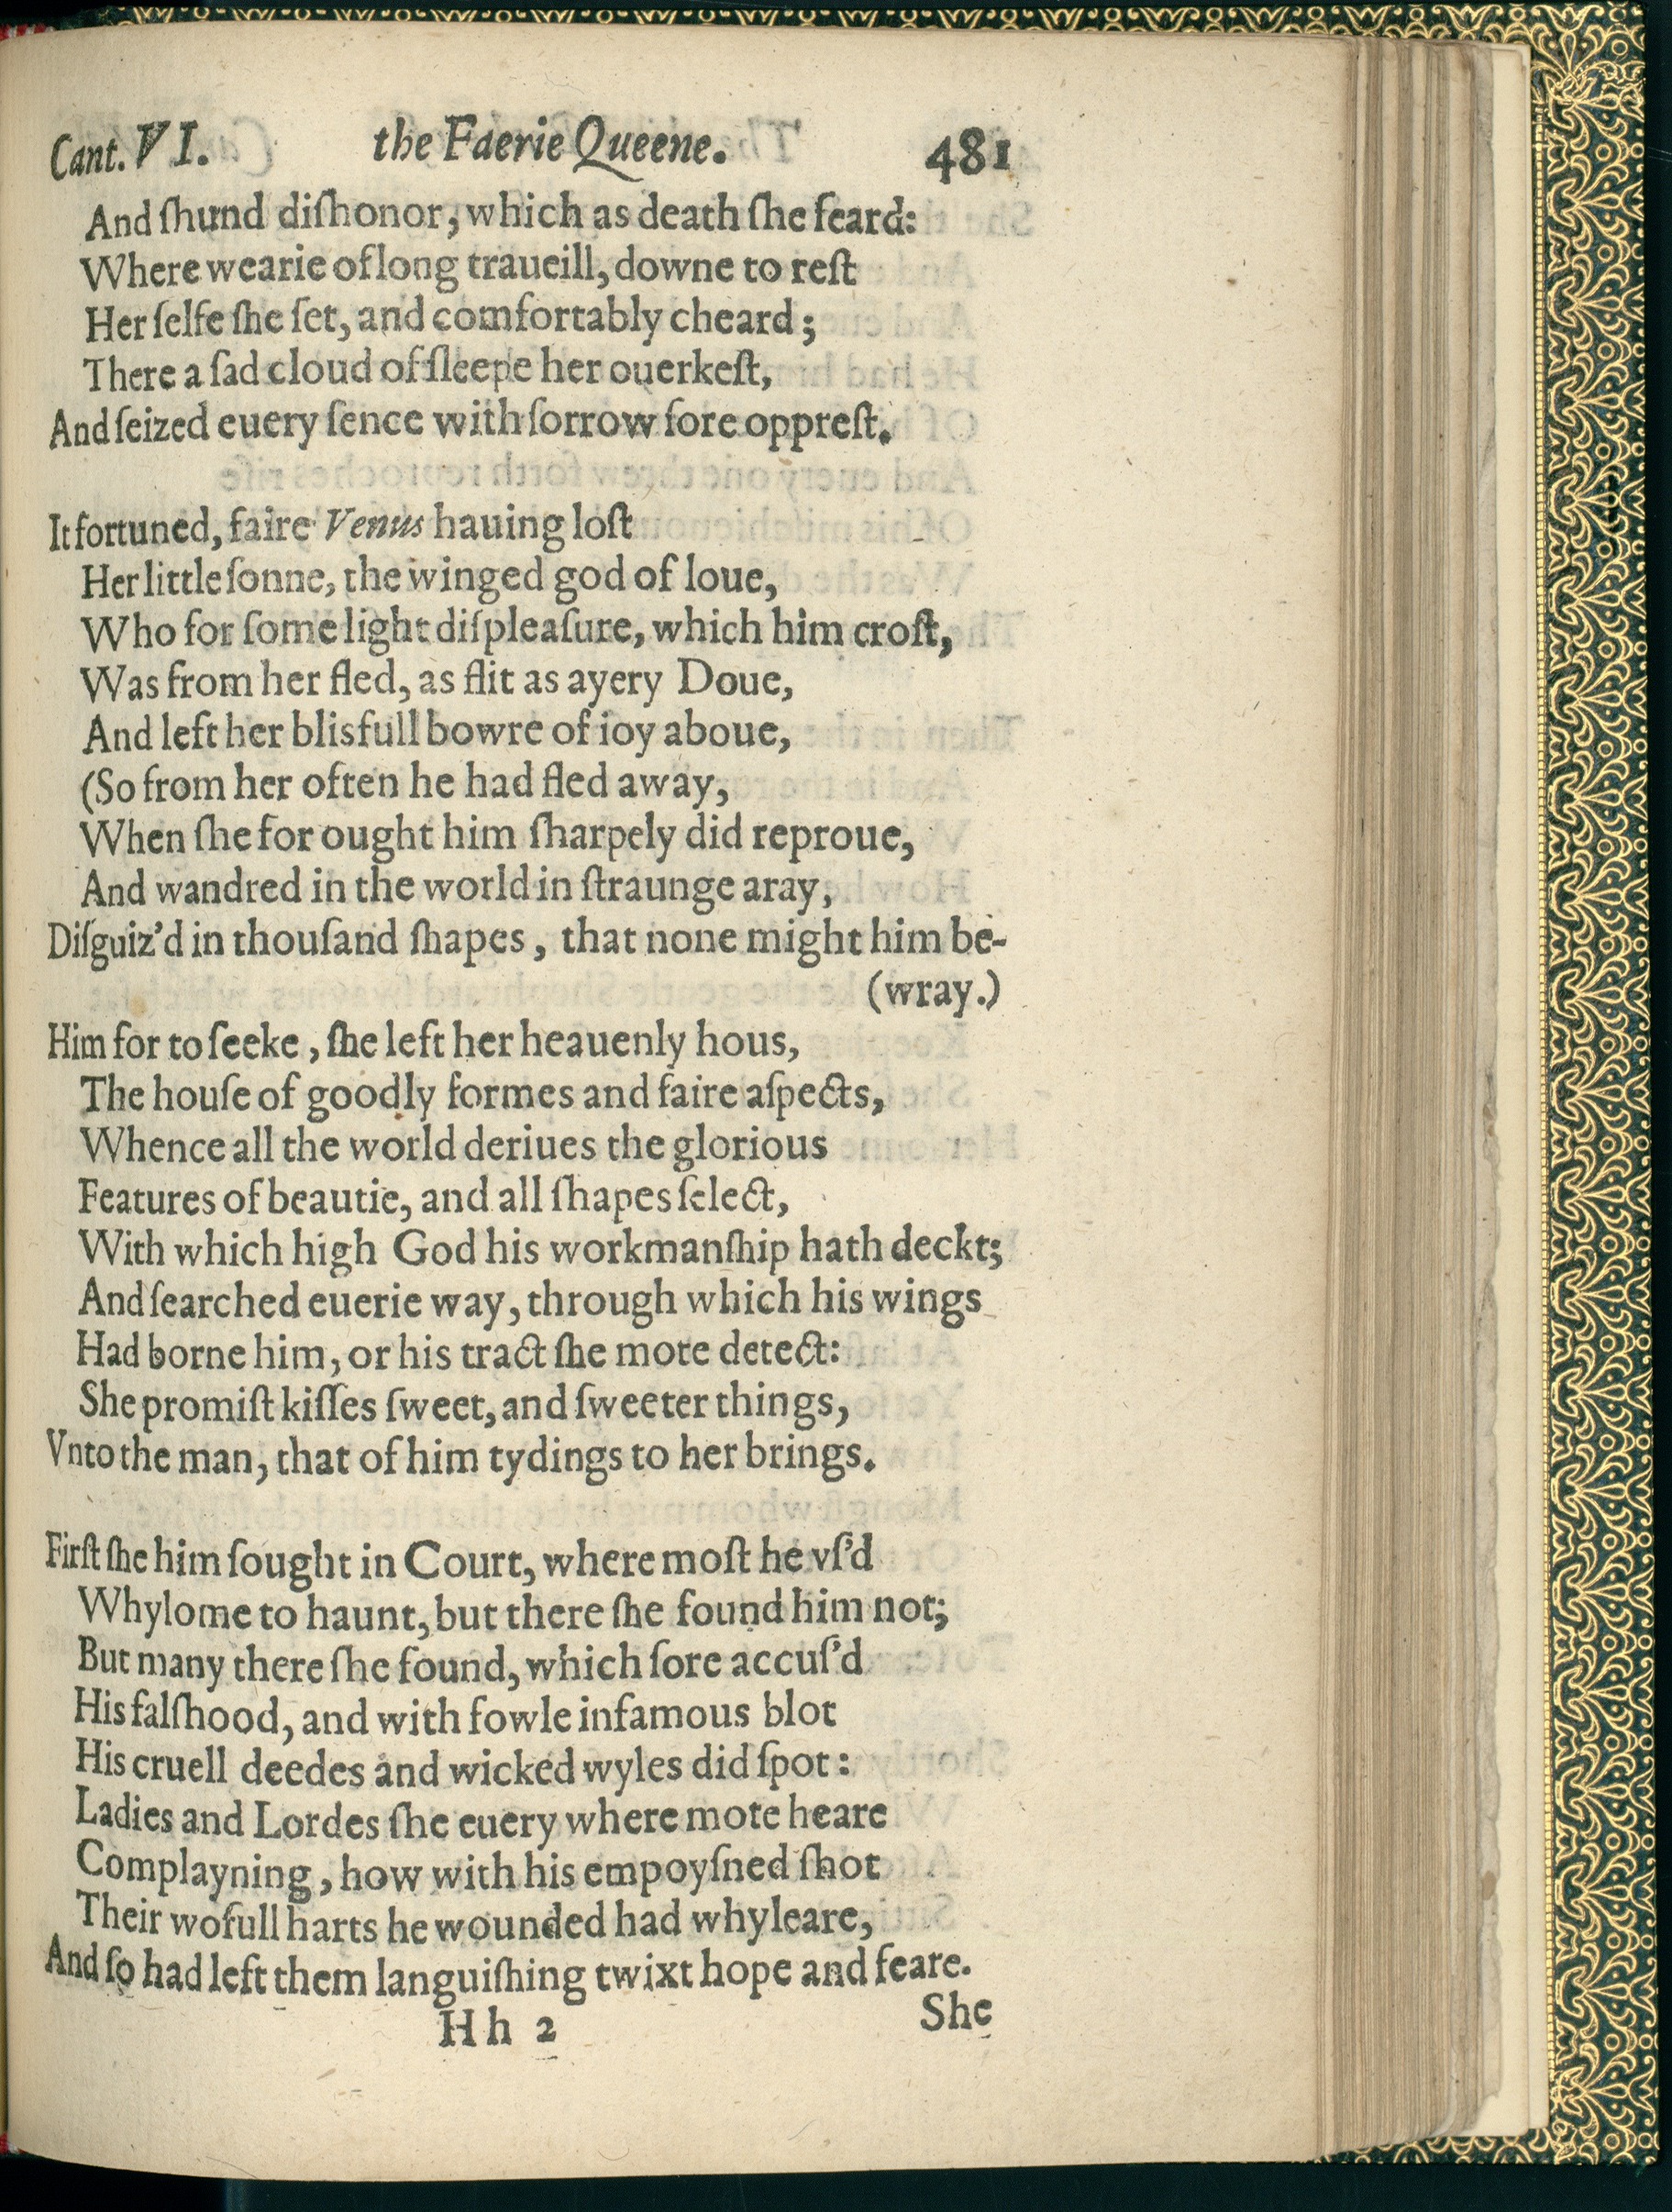 Cant. VI. the Faerie Queene. 481
And ſhund diſhonor, which as death ſhe feard:
Where wearie of long traueill, downe to reſt
Her ſelfe ſhe ſet, and comfortably cheard;
There a ſad cloud of ſleepe her ouerkeſt,
And ſeized euery ſence with ſorrow ſore oppreſt.
It fortuned, faire Venus hauing loſt
Her little ſonne, the winged god of loue,
Who for ſome light diſpleaſure, which him croſt,
Was from her fled, as flit as ayery Doue,
And left her blisfull bowre of ioy aboue,
(So from her often he had fled away,
When ſhe for ought him ſharpely did reproue,
And wandred in the world in ſtraunge aray,
Diſguiz'd in thouſand ſhapes, that none might him be-
(wray.)
Him for to ſeeke, ſhe left her heauenly hous,
The houſe of goodly formes and faire aſpects,
Whence all the world deriues the glorious
Features of beautie, and all ſhapes ſelect,
With which high God his workmanſhip hath deckt;
And ſearched euerie way, through which his wings
Had borne him, or his tract ſhe mote detect:
She promiſt kiſſes ſweet, and ſweeter things,
Vnto the man, that of him tydings to her brings.
Firſt ſhe him ſought in Court, where moſt he vſ'd
Whylome to haunt, but there ſhe found him not;
But many there ſhe found, which ſore accuſ'd
His falſhood, and with fowle infamous blot
His cruell deedes and wicked wyles did ſpot:
Ladies and Lordes ſhe euery where mote heare
Complayning, how with his empoyſned ſhot
Their wofull harts he wounded had whyleare,
And ſo had left them languiſhing twixt hope and feare.
Hh 2 She